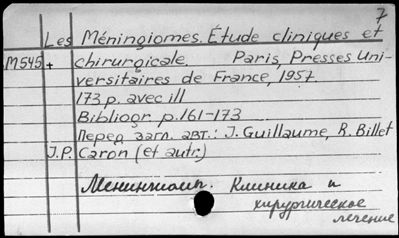 7
Les Méningiomes. Étude cliniques et
M545 + chirurgicale. Paris, Presses Uni-
versitaires de France, 1957.
173 p. avec ill
Bibliogr. p. 161-173
Перед загл. авт.: J. Guillaume, R. Billet
J.P. Caron (et autr.)
Менингиом. Клиника и
хирургическое
лечение